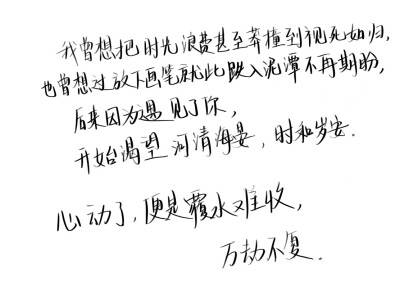 我曾想把时光浪费甚至莽撞到视死如归,
也曾想过放下画笔就此跌入泥潭不再期盼,
后来因为遇见了你,
开始渴望河清海晏,时和岁安.
心动了,便是覆水难收,
万劫不复.